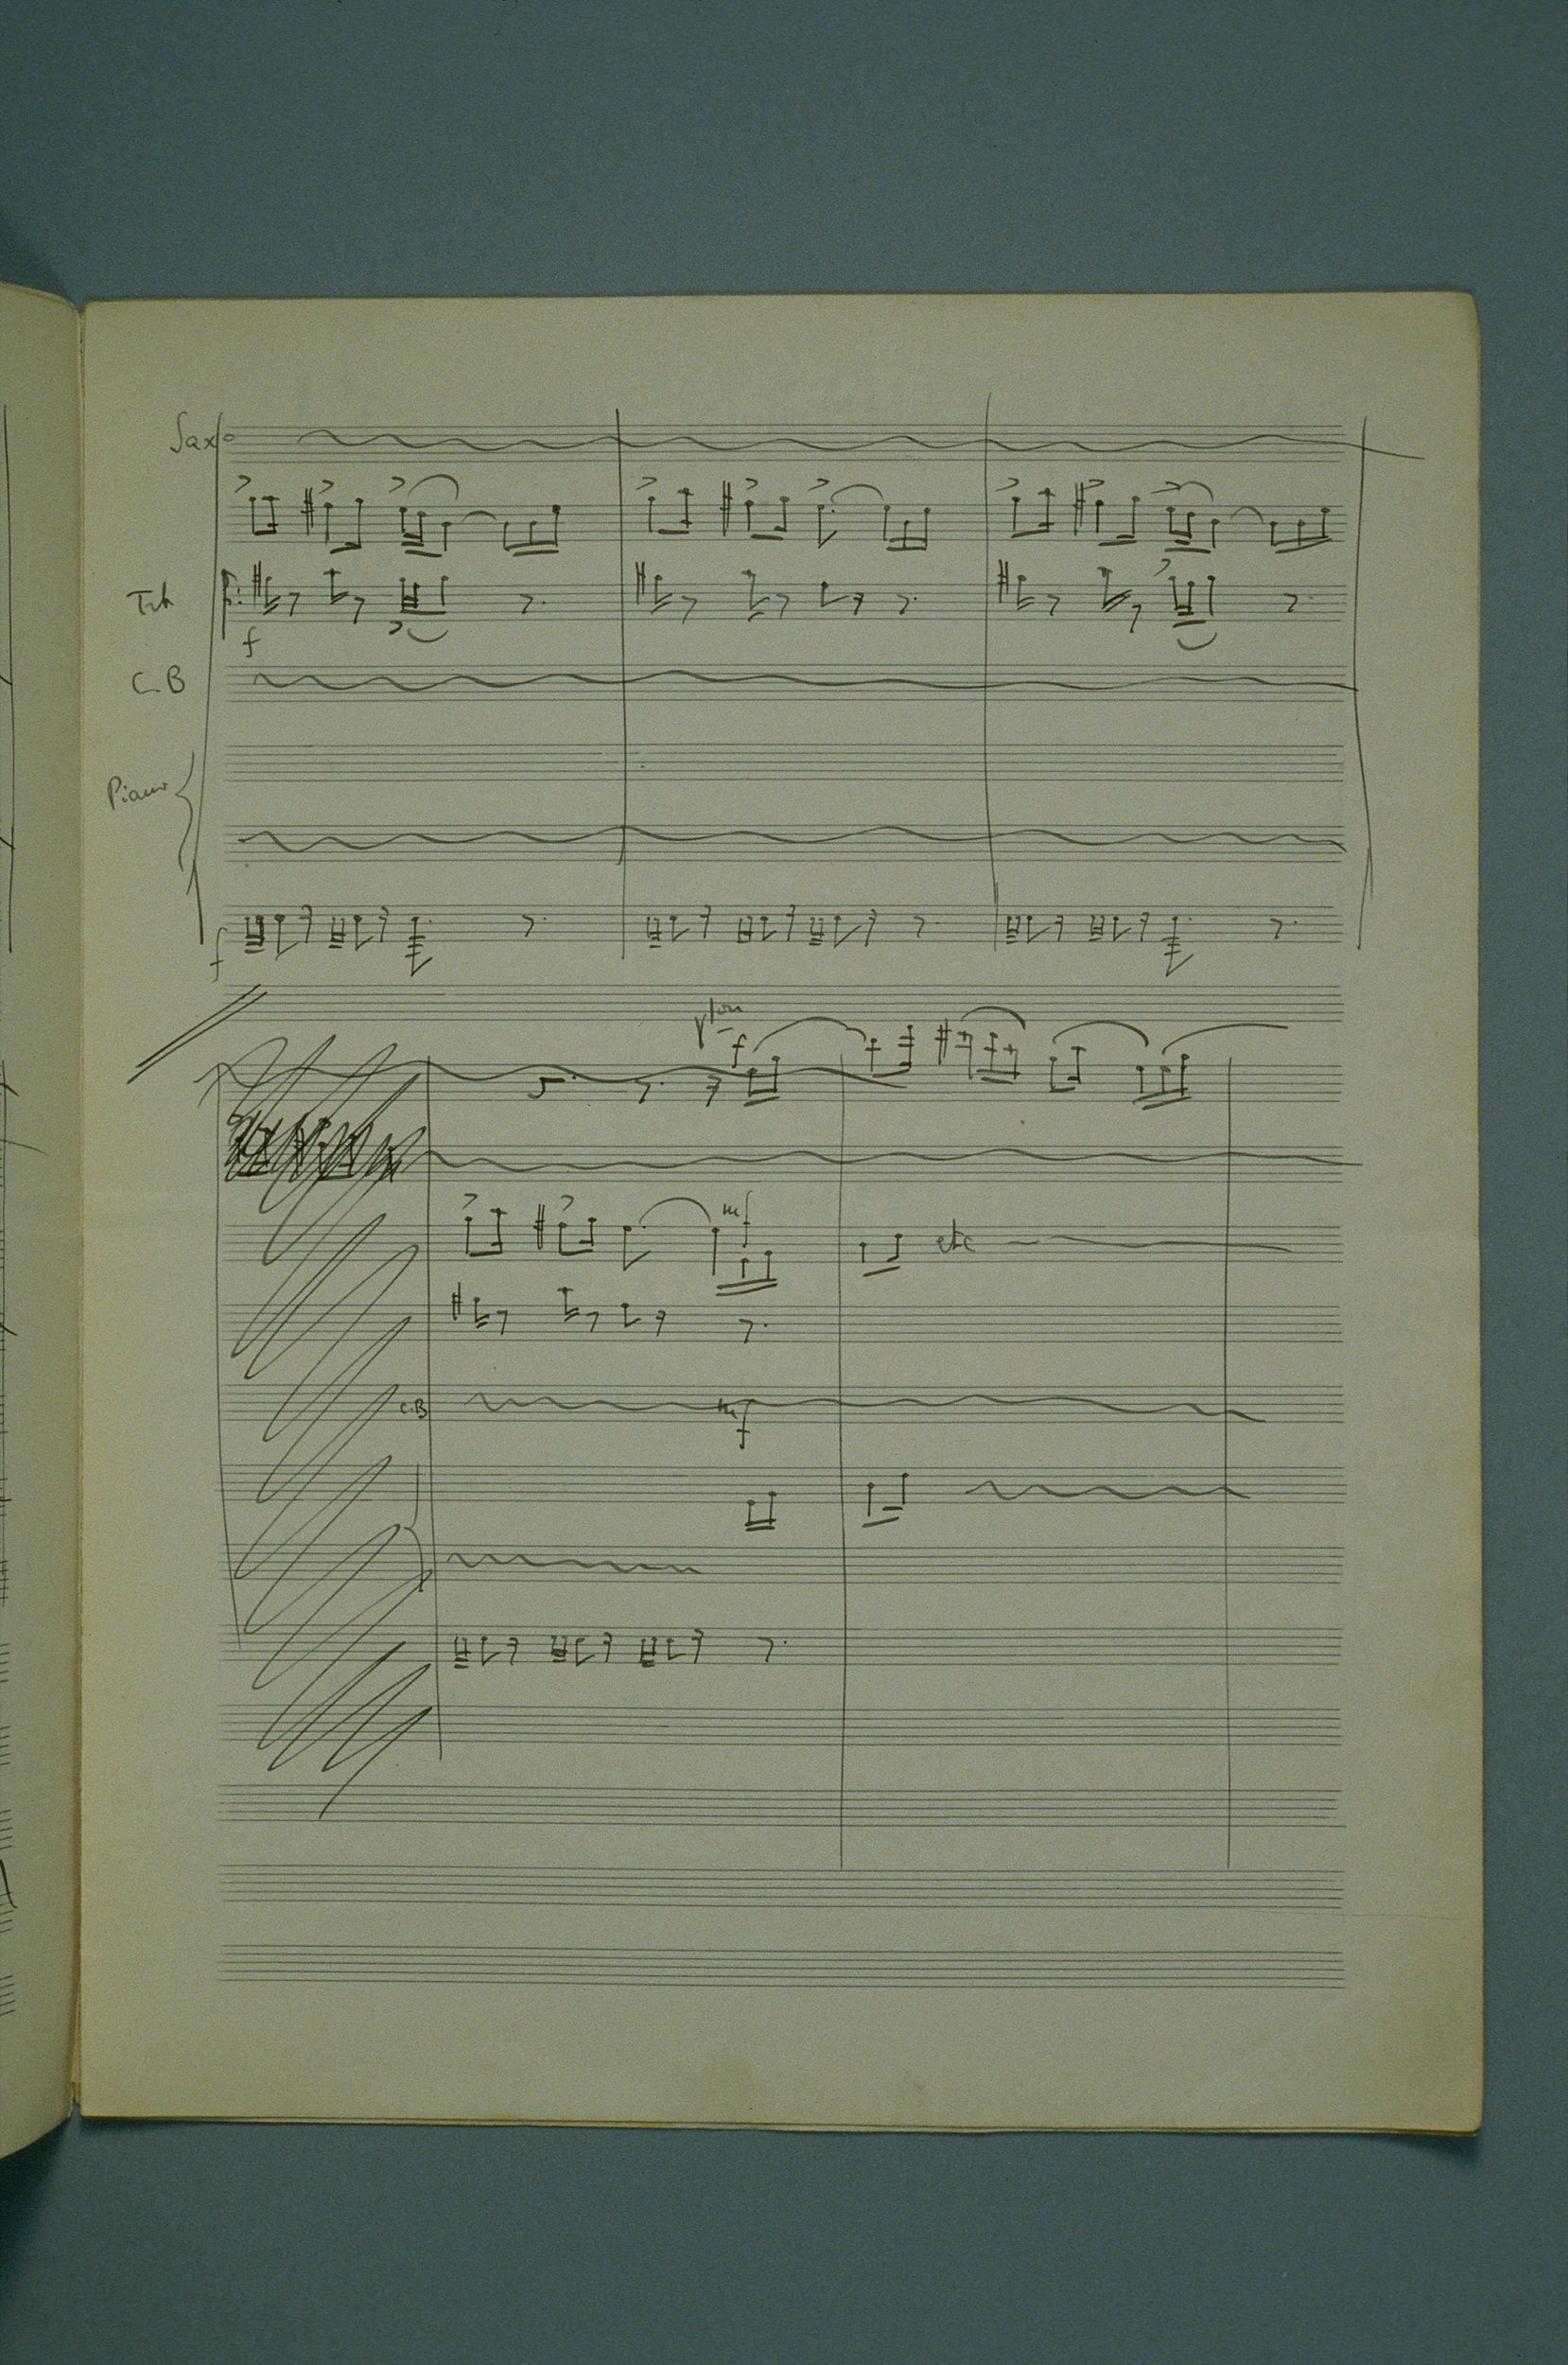 Saxo
Trb
f
C.B
Piano
f
Vlon
f
mf
etc
C.B
mf